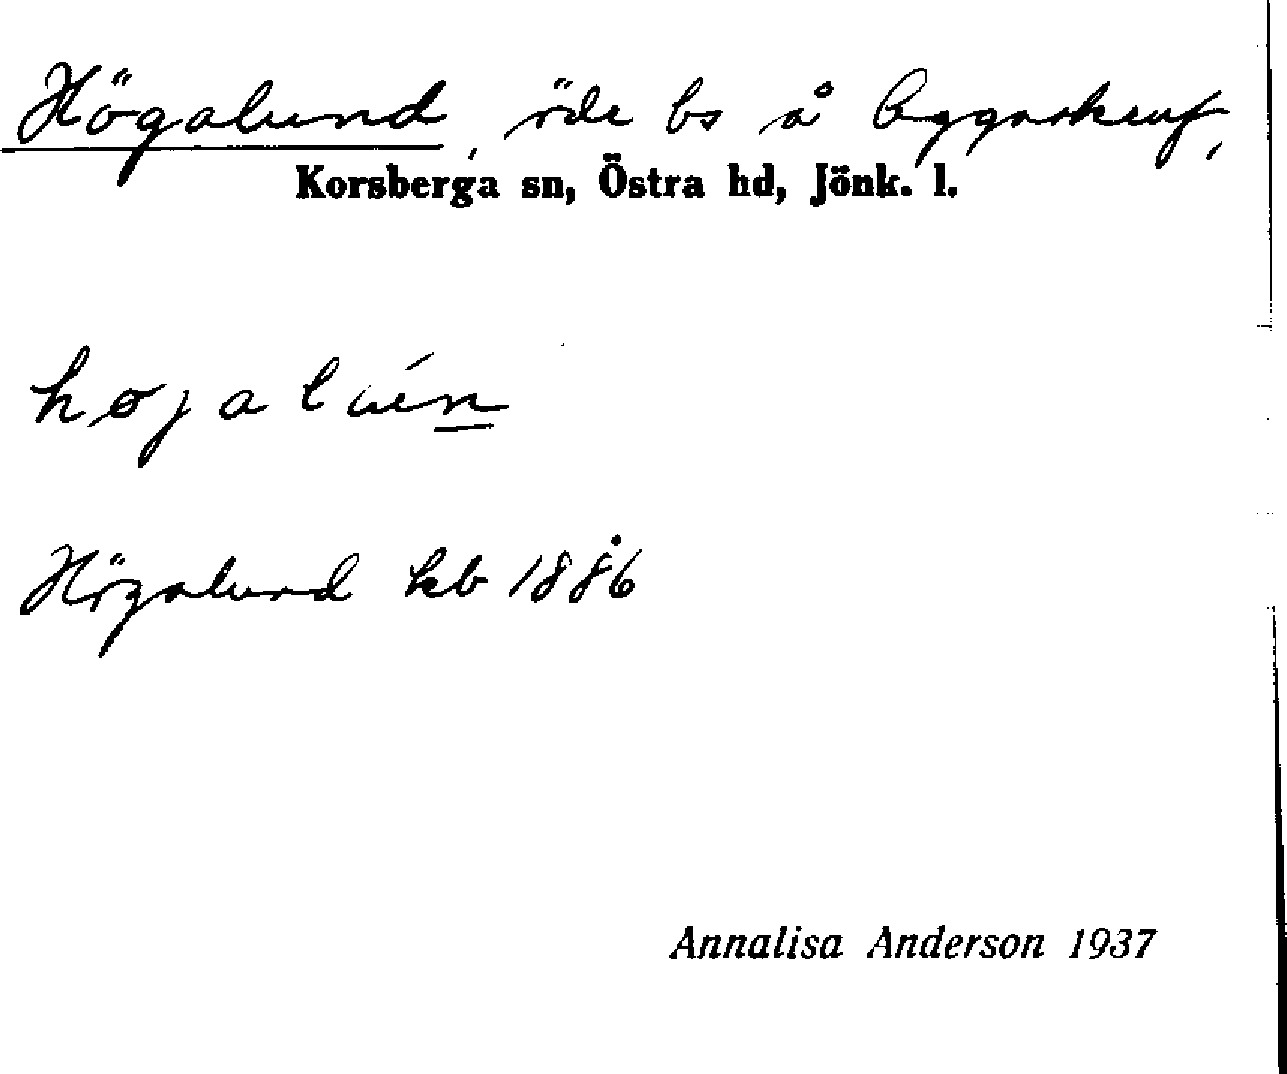 Högalund, öde bs å Byggaskeuf,
Korsberga sn, Östra hd, Jönk. l.
högalún
Högalund kb 1886
Annalisa Anderson 1937